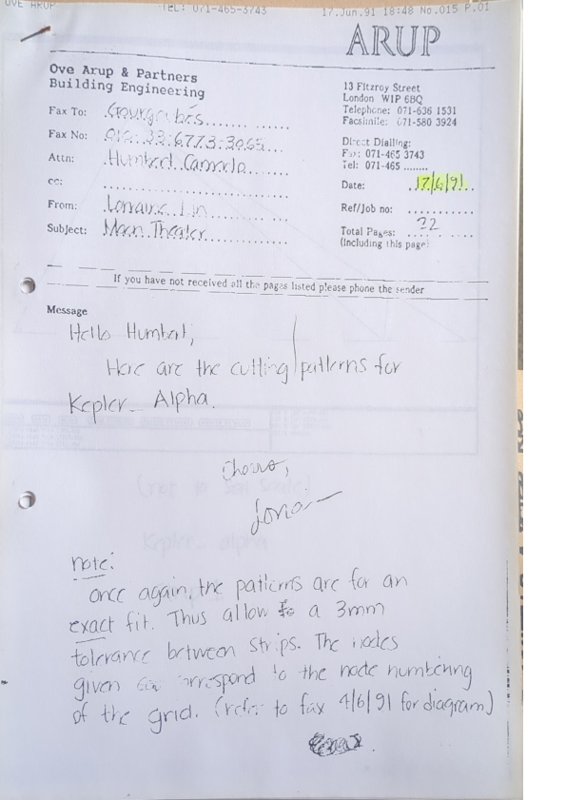 OVE ARUP TEL: 071-465-3743 17.Jun.91 18:48 No.015 P.01
ARUP
Ove Arup & Partners
Building Engineering
13 Fitzroy Street
London W1P 6BQ
Telephone: 071-636 1531
Facsimile: 071-580 3924
Fax To:
Fax No: 010:33:6773:3065
Direct Dialling:
Fax: 071-465 3743
Tel: 071-465 ........
Attn: Humbert
cc:
Date: 17/6/91
From: Lorraine Lin
Ref/Job no:
Subject: Moon Theater
Total Pages: 32
(including this page)
If you have not received all the pages listed please phone the sender
Message
Hello Humbert,
Here are the cutting patterns for
Kepler - Alpha.
note:
once again, the patterns are for an
exact fit. Thus allow a 3mm
tolerance between strips. The nodes
given correspond to the node numbering
of the grid. (refer to fax 4/6/91 for diagram)
(not to scale)
Kepler - alpha